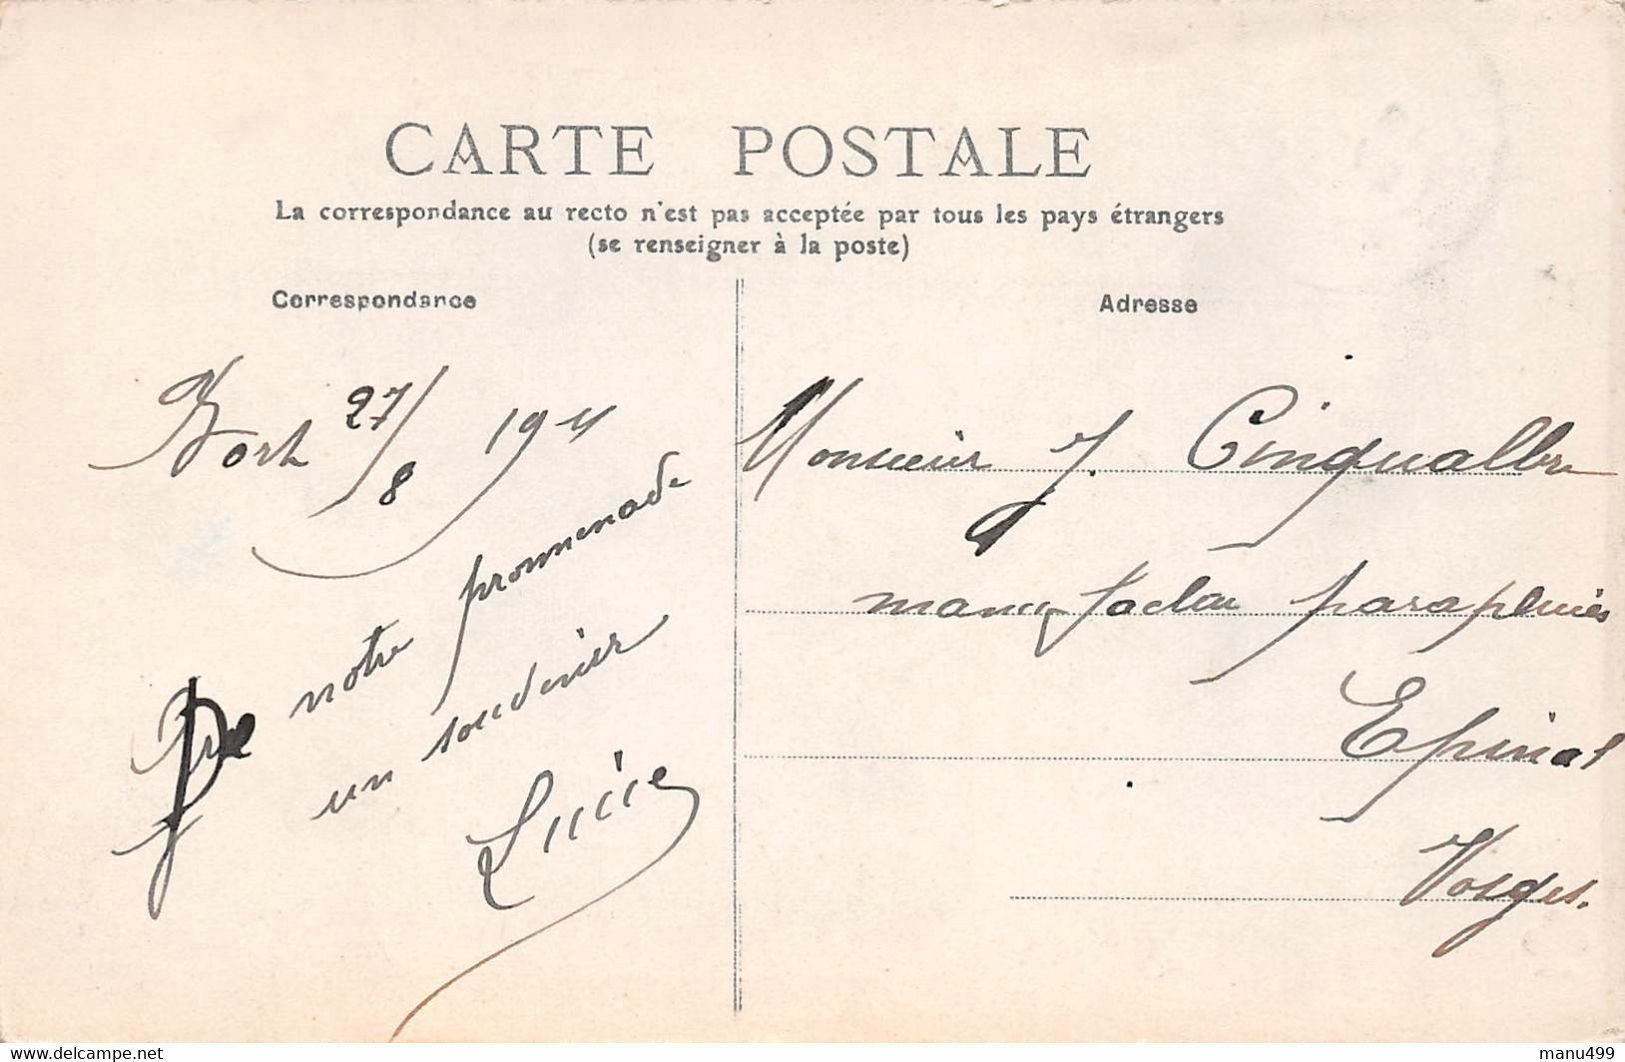 CARTE POSTALE
La correspondance au recto n'est pas acceptée par tous les pays étrangers
(se renseigner à la poste)
Correspondance
Adresse
Bort 27/8 1911
De notre promenade
un souvenir
Lucie
Monsieur J. Cinqualbre
manufacture parapluies
Epinal
Vosges.
www.delcampe.net
manu499